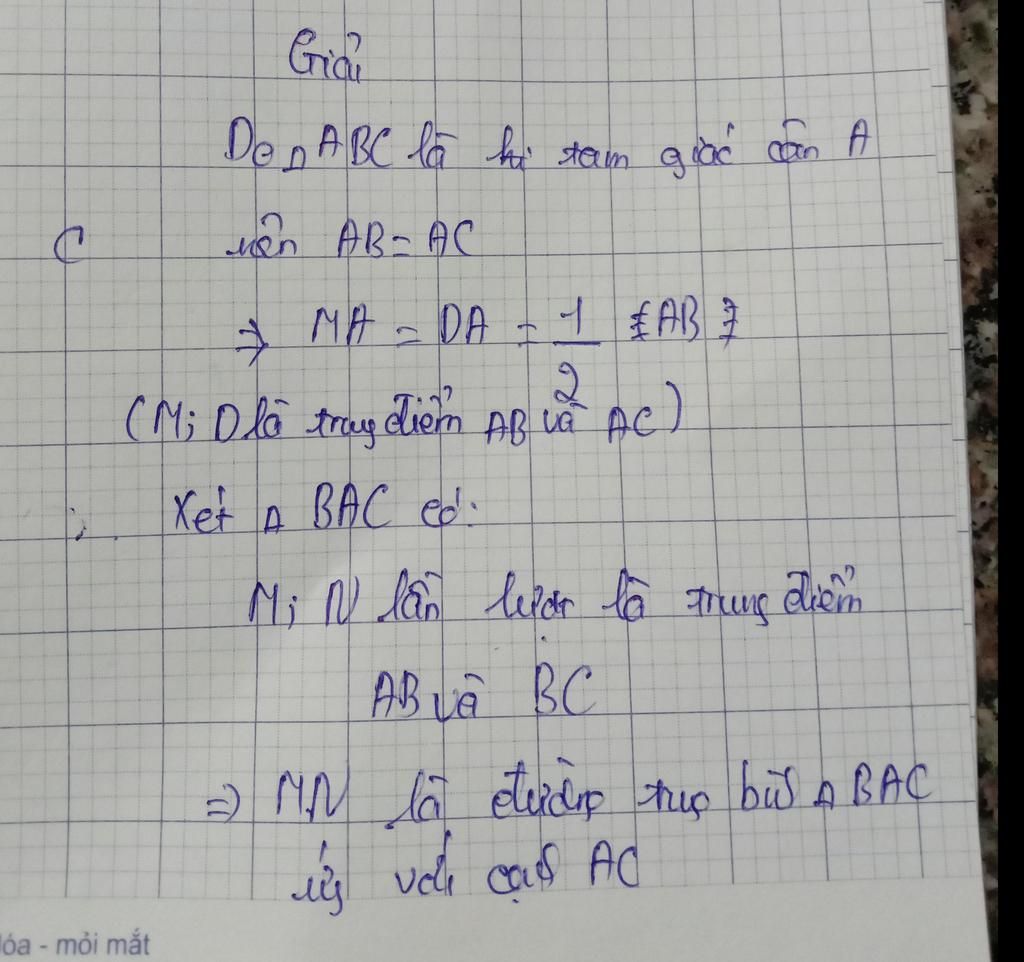 Giải
Do △ABC là tam giác cân A
C nên AB = AC
⇒ MA = DA = 1/2 AB
(M; D là trung điểm AB và AC)
Xét △ BAC có:
M; N lần lượt là trung điểm
AB và BC
⇒ MN là đường trug bìh △ BAC
ứg với cạh AC
óa - mỏi mắt